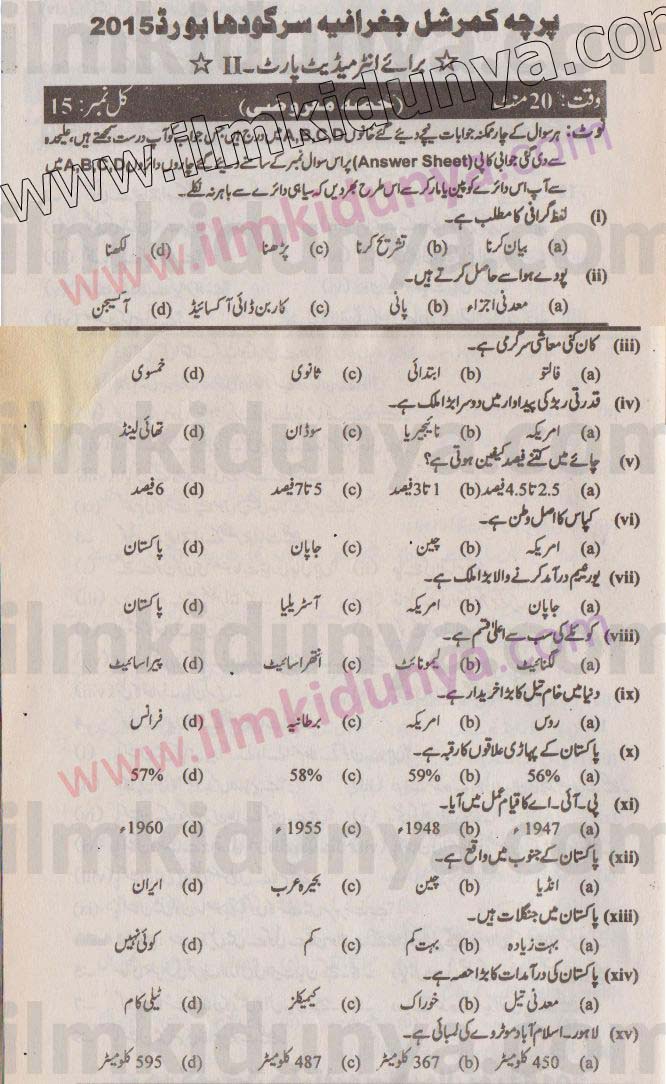 پرچہ کمرشل جغرافیہ سرگودھا بورڈ 2015
☆ برائے انٹرمیڈیٹ پارٹ۔ II ☆
وقت: 20 منٹ (حصہ معروضی) کل نمبر: 15
نوٹ: ہر سوال کے چار ممکنہ جوابات نیچے دیئے گئے خانوں A,B,C,D میں درج ہیں جس جواب کو آپ درست سمجھتے ہیں، علیحدہ
سے دی گئی جوابی کاپی (Answer Sheet) پر اس سوال نمبر کے سامنے دیئے گئے چاروں دائروں A,B,C,D میں
سے آپ اس دائرے کو پین یا مارکر سے اس طرح بھر دیں کہ سیاہی دائرے سے باہر نہ نکلے۔
(i) لفظ گرافی کا مطلب ہے۔
(a) بیان کرنا (b) تشریح کرنا (c) پڑھنا (d) لکھنا
(ii) پودے ہوا سے حاصل کرتے ہیں۔
(a) معدنی اجزاء (b) پانی (c) کاربن ڈائی آکسائیڈ (d) آکسیجن
(iii) کان کنی معاشی سرگرمی ہے۔
(a) فالتو (b) ابتدائی (c) ثانوی (d) خمسوی
(iv) قدرتی ربڑ کی پیداوار میں دوسرا بڑا ملک ہے۔
(a) امریکہ (b) نائیجیریا (c) سوڈان (d) تھائی لینڈ
(v) چائے میں کتنے فیصد کیفین ہوتی ہے؟
(a) 2.5 تا 4.5 فیصد (b) 1 تا 3 فیصد (c) 5 تا 7 فیصد (d) 6 فیصد
(vi) کپاس کا اصل وطن ہے۔
(a) امریکہ (b) چین (c) جاپان (d) پاکستان
(vii) یورینیم درآمد کرنے والا بڑا ملک ہے۔
(a) جاپان (b) امریکہ (c) آسٹریلیا (d) پاکستان
(viii) کوئلے کی سب سے اعلیٰ قسم ہے۔
(a) لگنائیٹ (b) لیمونائٹ (c) انتھراسائیٹ (d) پیراسائیٹ
(ix) دنیا میں خام تیل کا بڑا خریدار ہے۔
(a) روس (b) امریکہ (c) برطانیہ (d) فرانس
(x) پاکستان کے پہاڑی علاقوں کا رقبہ ہے۔
(a) 56% (b) 59% (c) 58% (d) 57%
(xi) پی۔آئی۔اے کا قیام عمل میں آیا۔
(a) 1947ء (b) 1948ء (c) 1955ء (d) 1960ء
(xii) پاکستان کے جنوب میں واقع ہے۔
(a) انڈیا (b) چین (c) بحیرہ عرب (d) ایران
(xiii) پاکستان میں جنگلات ہیں۔
(a) بہت زیادہ (b) بہت کم (c) کم (d) کوئی نہیں
(xiv) پاکستان کی درآمدات کا بڑا حصہ ہے۔
(a) معدنی تیل (b) خوراک (c) کیمیکلز (d) ٹیلی کام
(xv) لاہور۔اسلام آباد موٹروے کی لمبائی ہے۔
(a) 450 کلومیٹر (b) 367 کلومیٹر (c) 487 کلومیٹر (d) 595 کلومیٹر
www.ilmkidunya.com
www.ilmkidunya.com
www.ilmkidunya.com
ilmkidunya.com
ilmkidunya.com
ilmkidunya.com
ilmkidunya.com
ilmkidunya.com